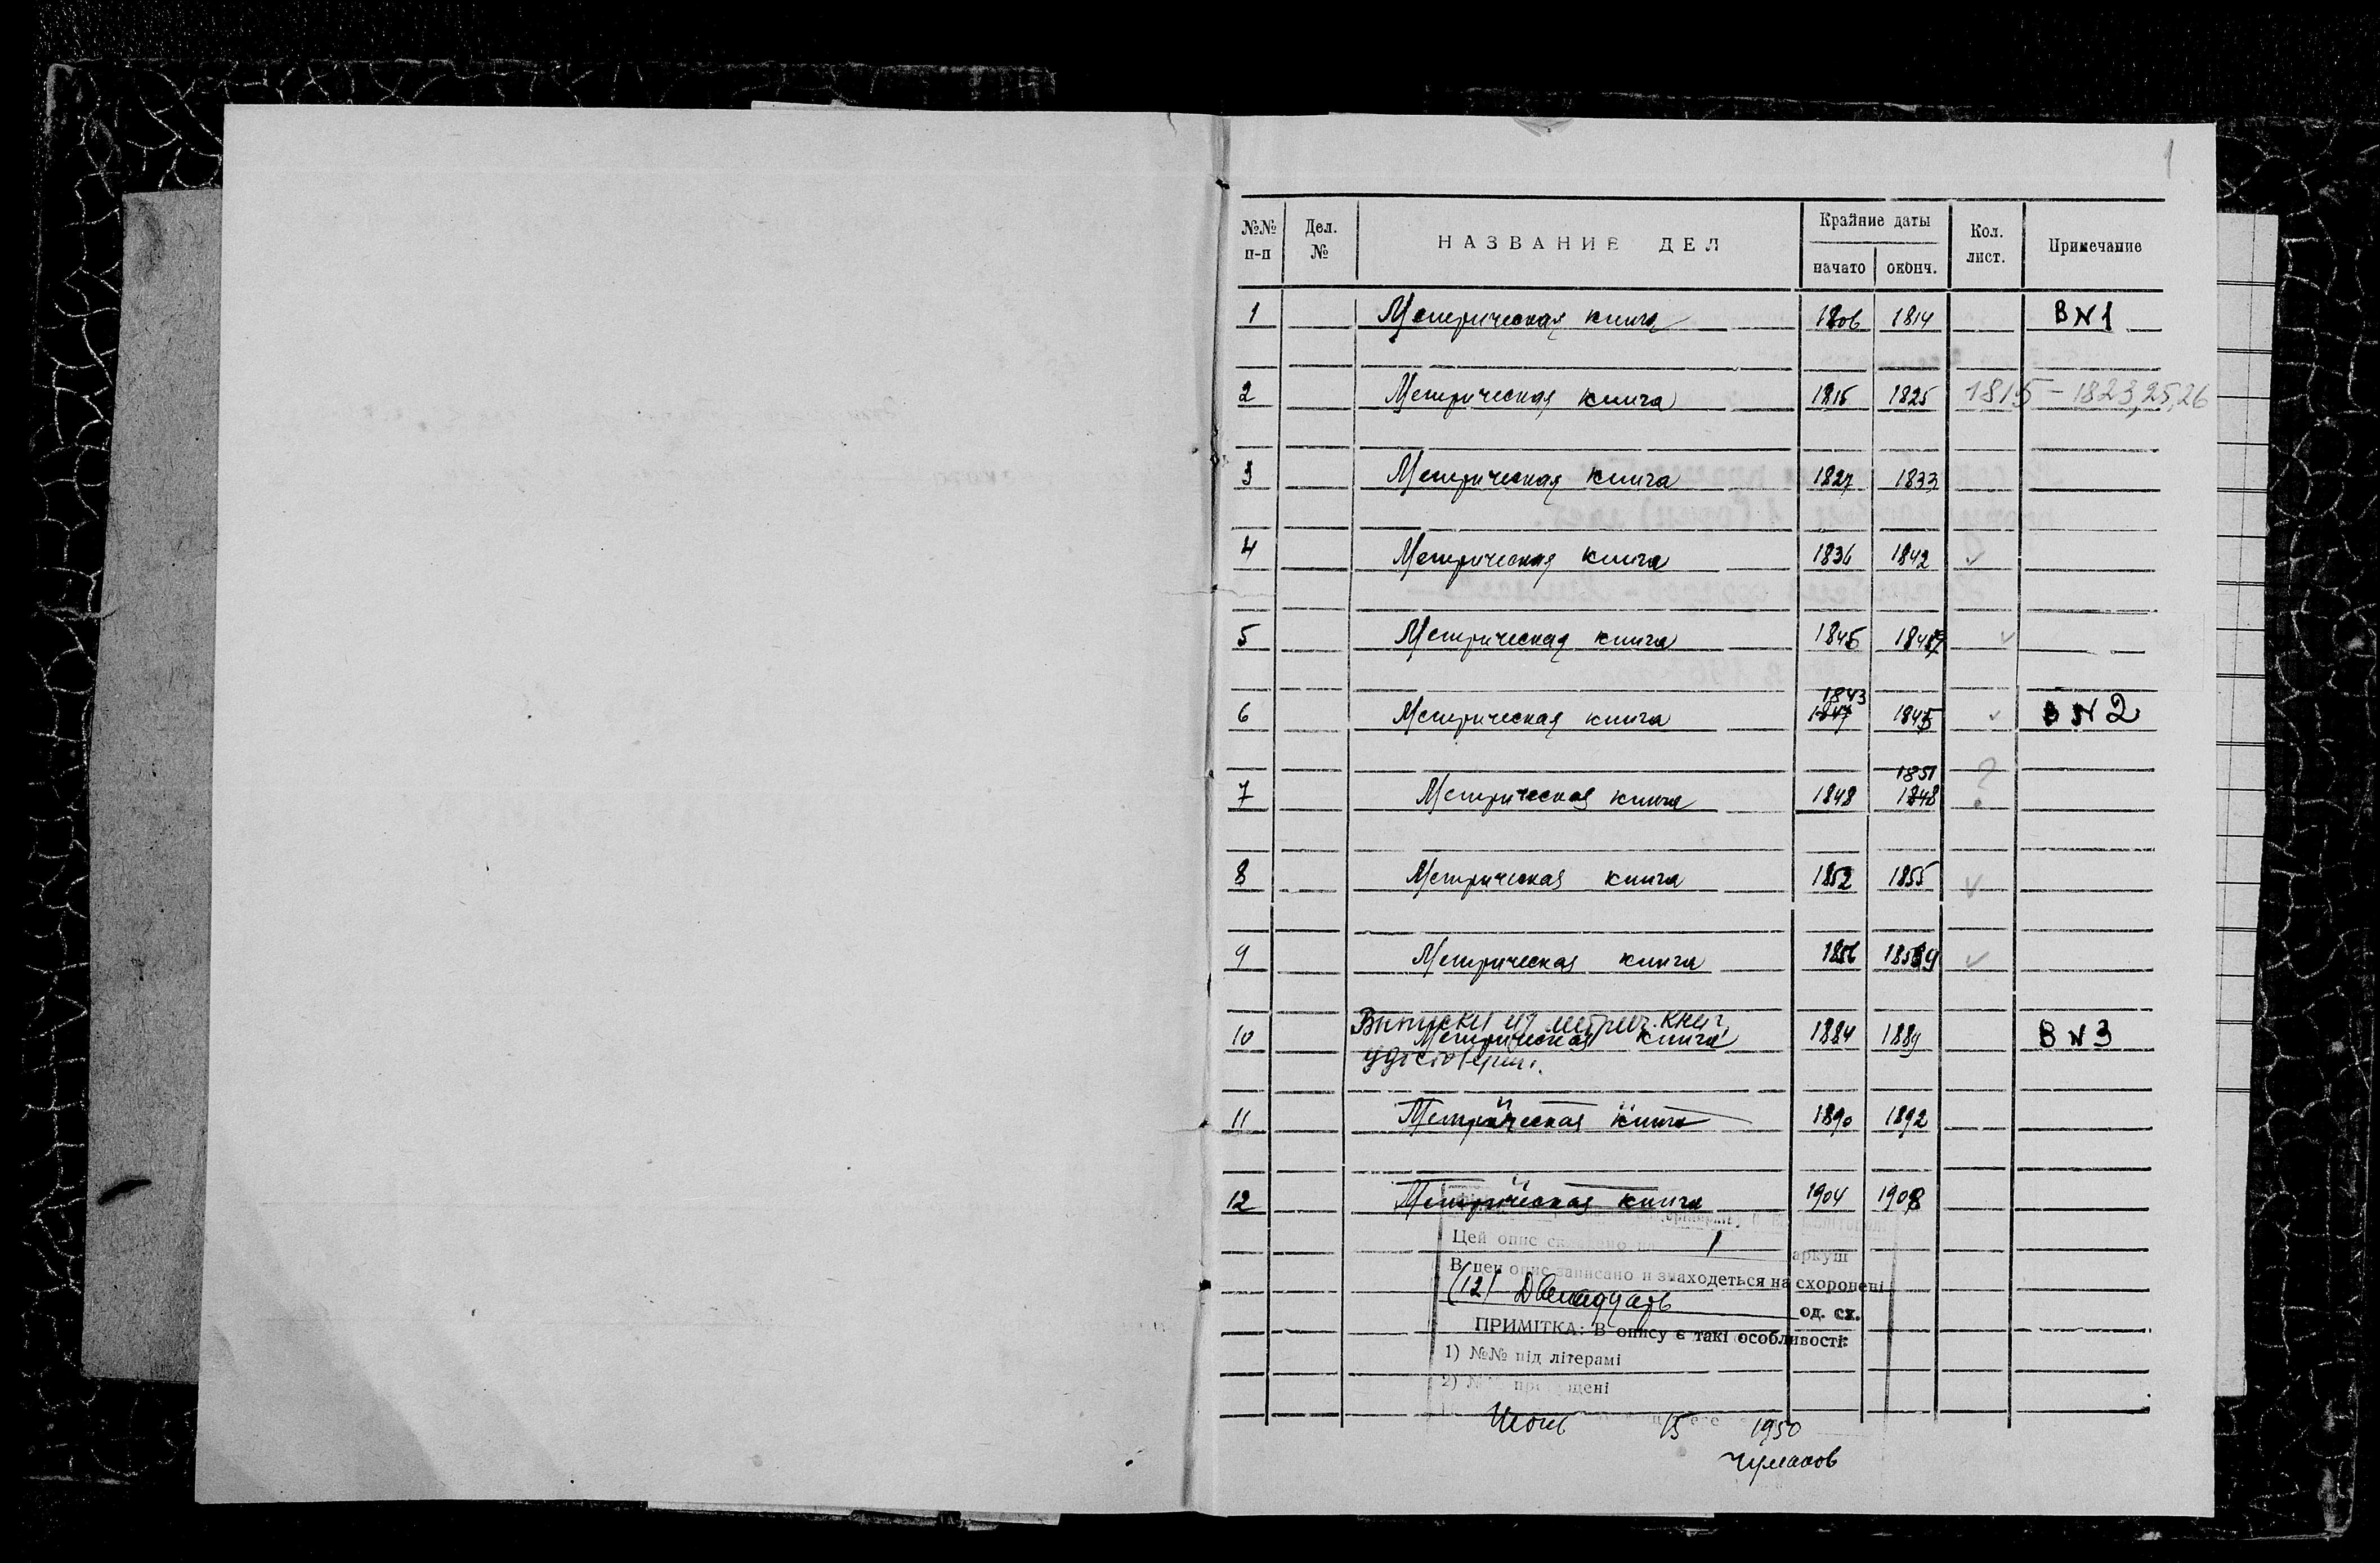 1
№№ п-п Дел. № НАЗВАНИЕ ДЕЛ Крайние даты начато оконч. Кол. лист. Примечание
1 Метрическая книга 1806 1814 В N 1
2 Метрическая книга 1815 1825 1815 – 1823, 25, 26
3 Метрическая книга 1827 1833
4 Метрическая книга 1836 1842 ✓
5 Метрическая книга 1845 ✓
1843
6 Метрическая книга 1847 1845 ✓ В N 2
1851
7 Метрическая книга 1848 1848 ?
8 Метрическая книга 1852 1855 ✓
9 Метрическая книга 1856 1859 ✓
Выписки из метрич. книг,
10 Метрическая книга 1884 1889 В N 3
удостоверен.
11 Метрическая книга 1890 1892
12 Метрическая книга 1904 1908
Цей опис складено на 1 аркуш
В цей опис записано и знаходеться на схоронені
(12) Двенадцать од. сх.
ПРИМІТКА: В опису є такі особливості:
1) №№ під літерамі
2) №№ пропущені
Июнь 15 1950
Чумаков